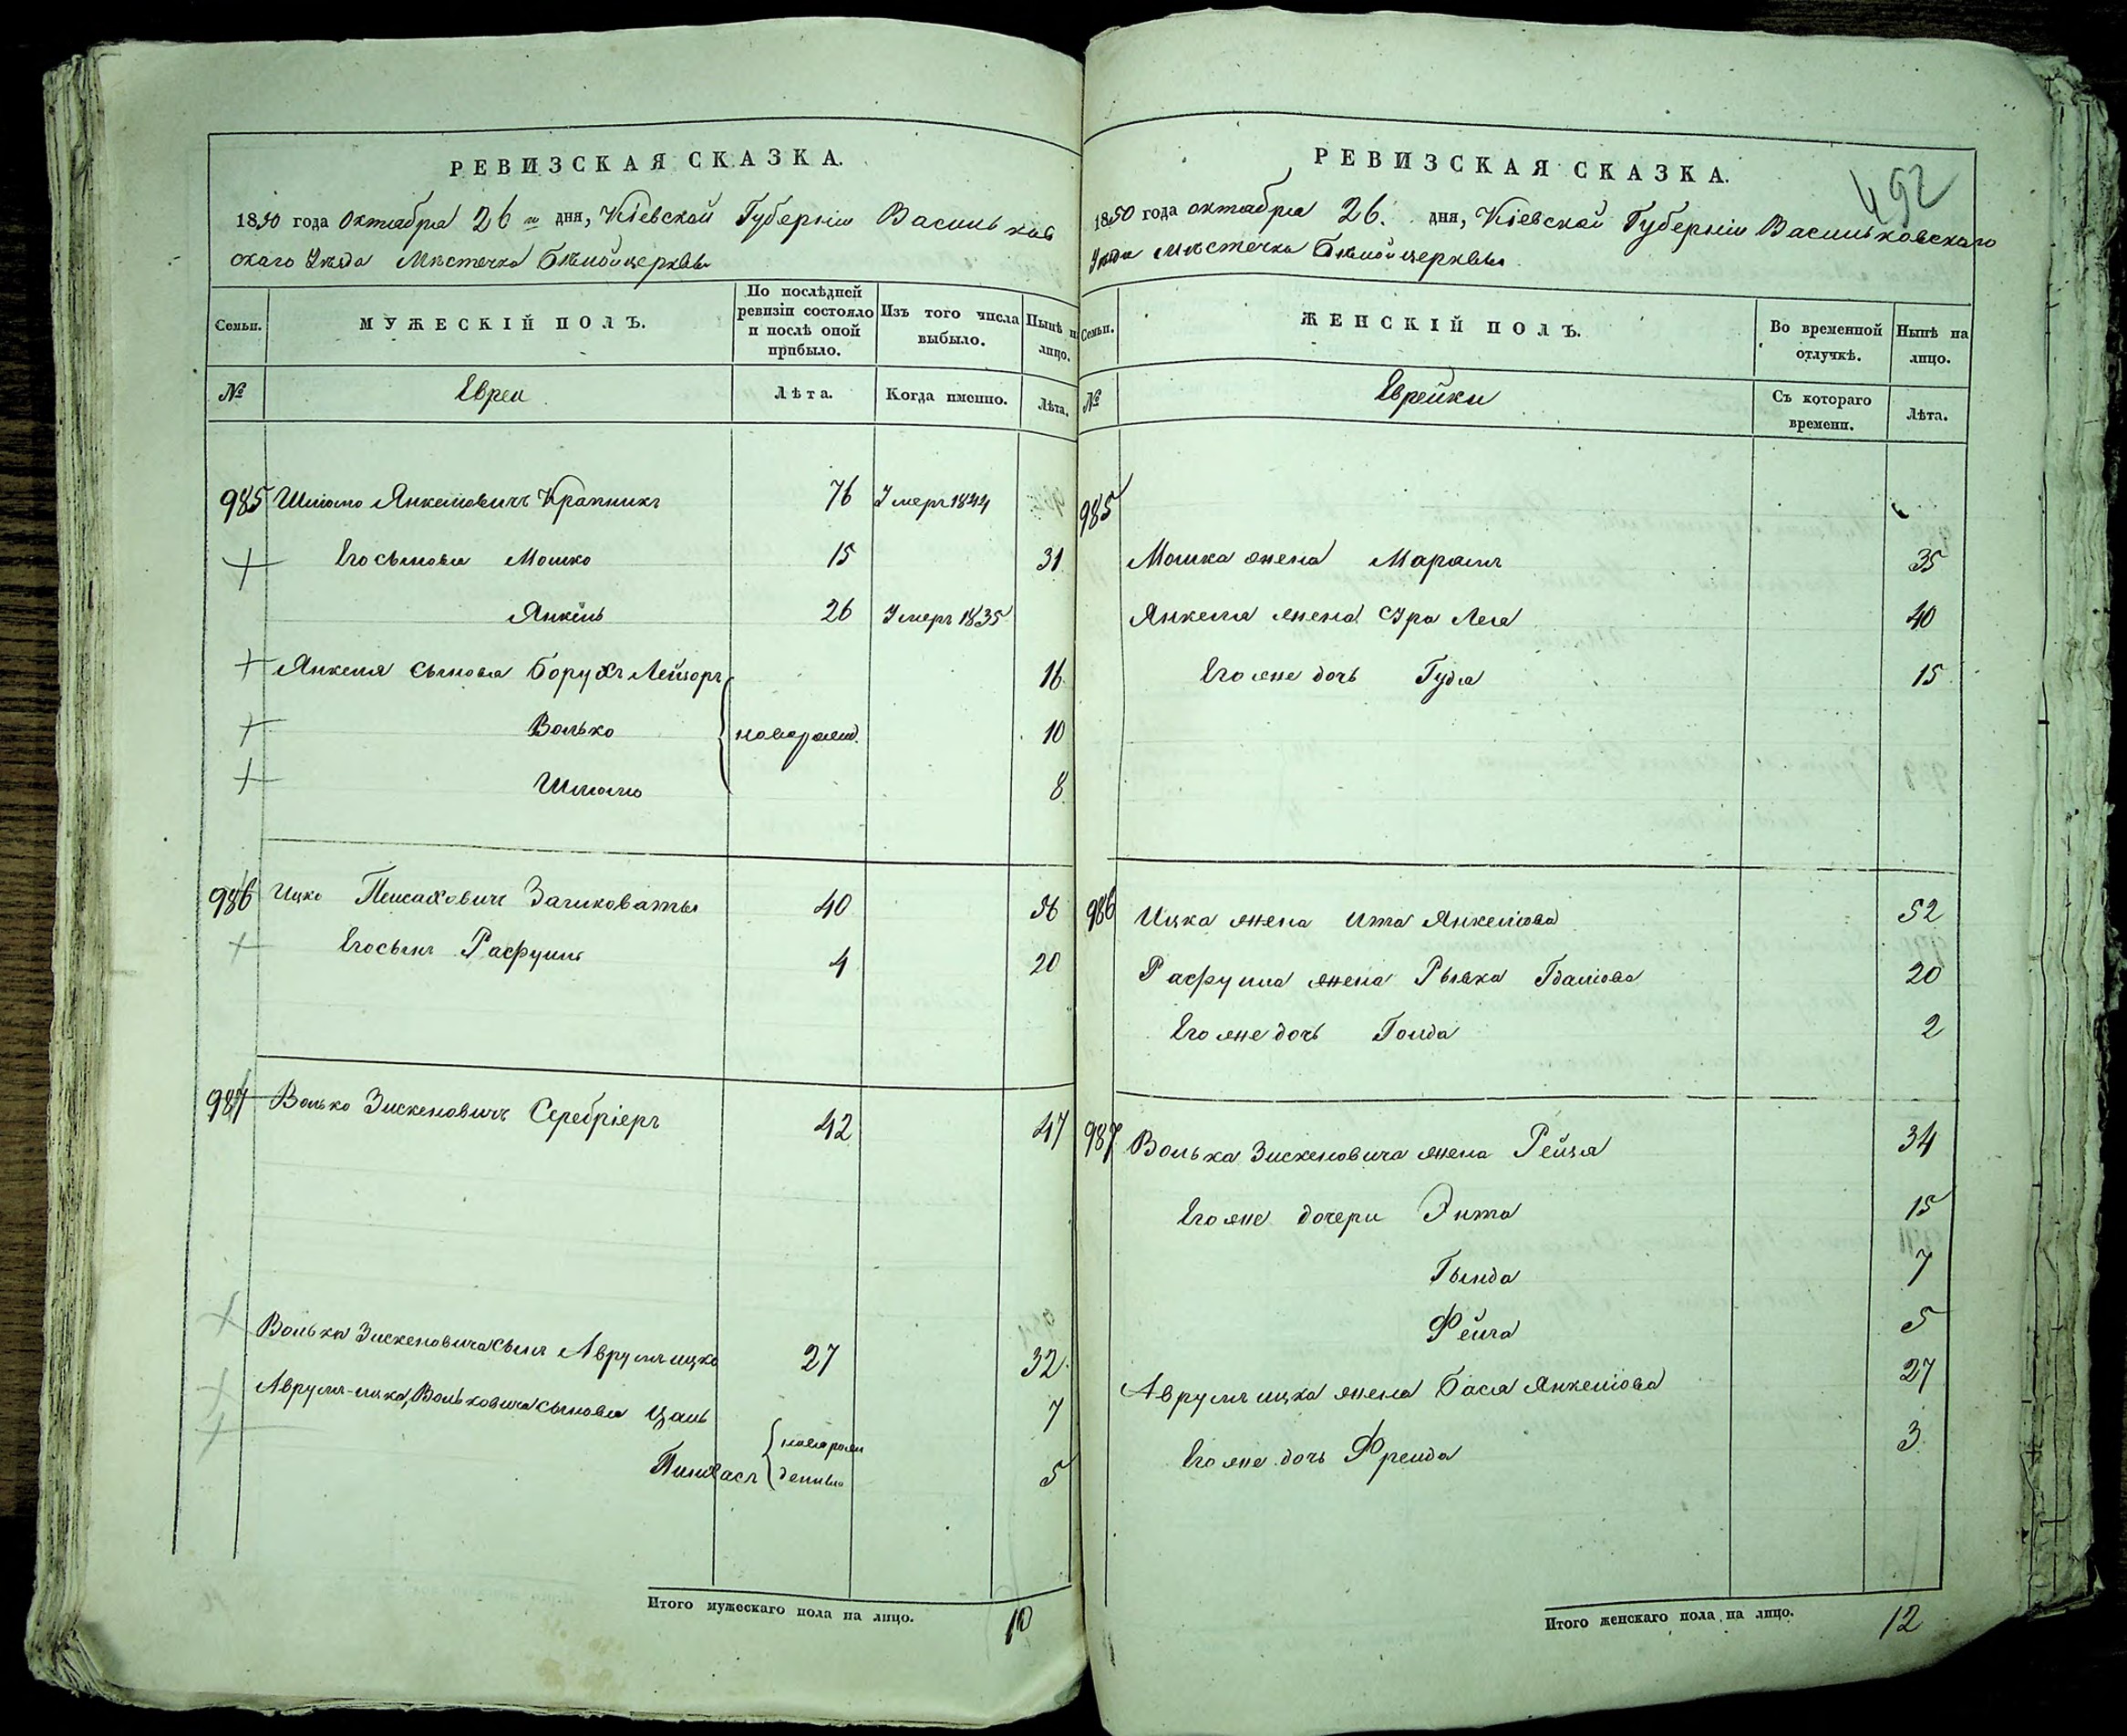 РЕВИЗСКАЯ СКАЗКА.
1850 года Октября 26 го дня, Кіевской Губерніи Васильков
скаго Уѣзда Мѣстечка Бѣлойцеркви
Семьи.
МУЖЕСКІЙ ПОЛЪ.
По послѣдней ревизіи состояло и послѣ оной прибыло.
Изъ того числа выбыло.
Нынѣ на лицо.
№
Евреи
Лѣта.
Когда именно.
Лѣта.
985 Шлиомо Янкелiовичъ Крапникъ 76 Умеръ 1844
Его сыновья Мошко 15 31
Янкель 26 Умеръ 1835
Янкеля сыновья Борухъ Лейзоръ 16
Волько новорожд. 10
Шлиомо 8
986 Ицко Пейсаховичъ 40 56
Его сынъ Расфулъ 4 20
987 Волько Зискеновичъ Серебріеръ 42 47
Волька Зискеновича сынъ Аврумъ ицко 27 32.
Аврумъ-ицка Вольковича сыновья Цаль 7
Пинхасъ новорожденные 5
Итого мужескаго пола на лицо. 10
РЕВИЗСКАЯ СКАЗКА.
492
1850 года октября 26. дня, Кіевской Губерніи Васильковскаго
Уѣзда Мѣстечка Бѣлойцеркви
Семьи.
ЖЕНСКІЙ ПОЛЪ.
Во временной отлучкѣ.
Нынѣ на лицо.
№
Еврейки
Съ котораго времени.
Лѣта.
985
Мошка жена Марьямъ 35
Янкеля жена Сура Лея 40
Его же дочь Гудя 15
986 Ицка жена Ита Янкелiова 52
Расфула жена Рывка 20
Его же дочь Голда 2
987 Волька Зискеновича жена Рейзя 34
Его же дочери Энта 15
Гында 7
Фейга 5
Аврумъ ицка жена Бася Янкелiова 27
Его же дочь Фрейда 3
Итого женскаго пола на лицо. 12